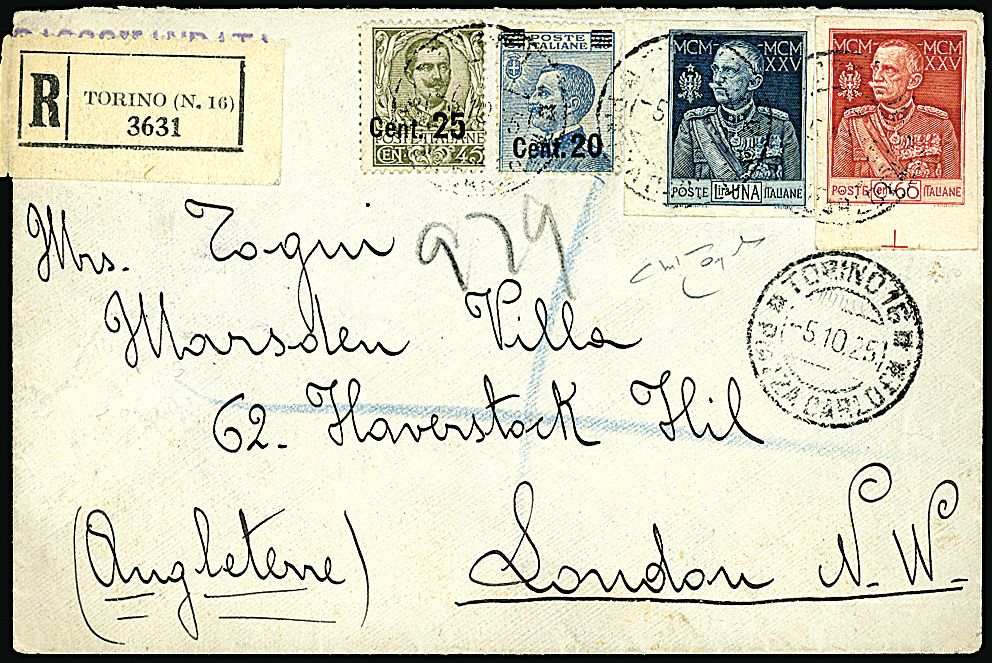 RACCOMANDATA
R
TORINO (N. 16)
3631
POSTE ITALIANE
Cent. 25
CENT. 45
POSTE
ITALIANE
Cent. 20
MCM MCM
XXV
POSTE Lire UNA ITALIANE
MCM MCM
XXV
POSTE Cent. 65 ITALIANE
979
TORINO 16
-5.10.25
PIAZZA CARLO
Mrs. Togni
Marsden Villa
62- Haverstock Hil
(Angleterre) London N. W-